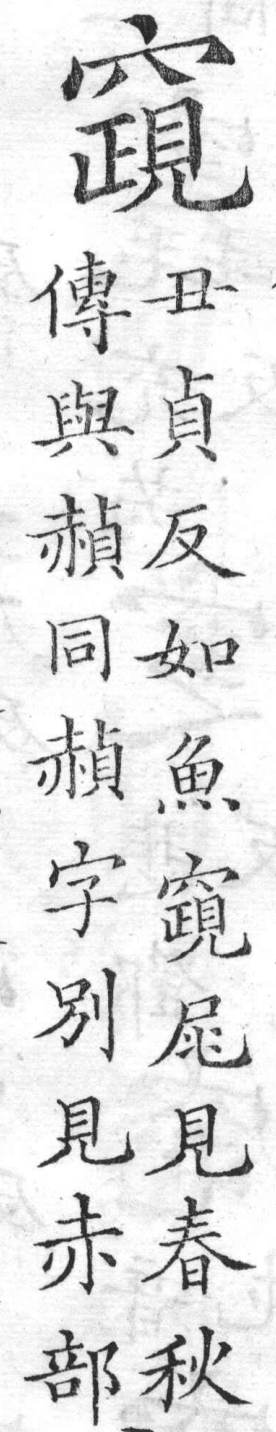 竀
丑貞反如魚竀尾見春秋
傳與赬同赬字別見赤部